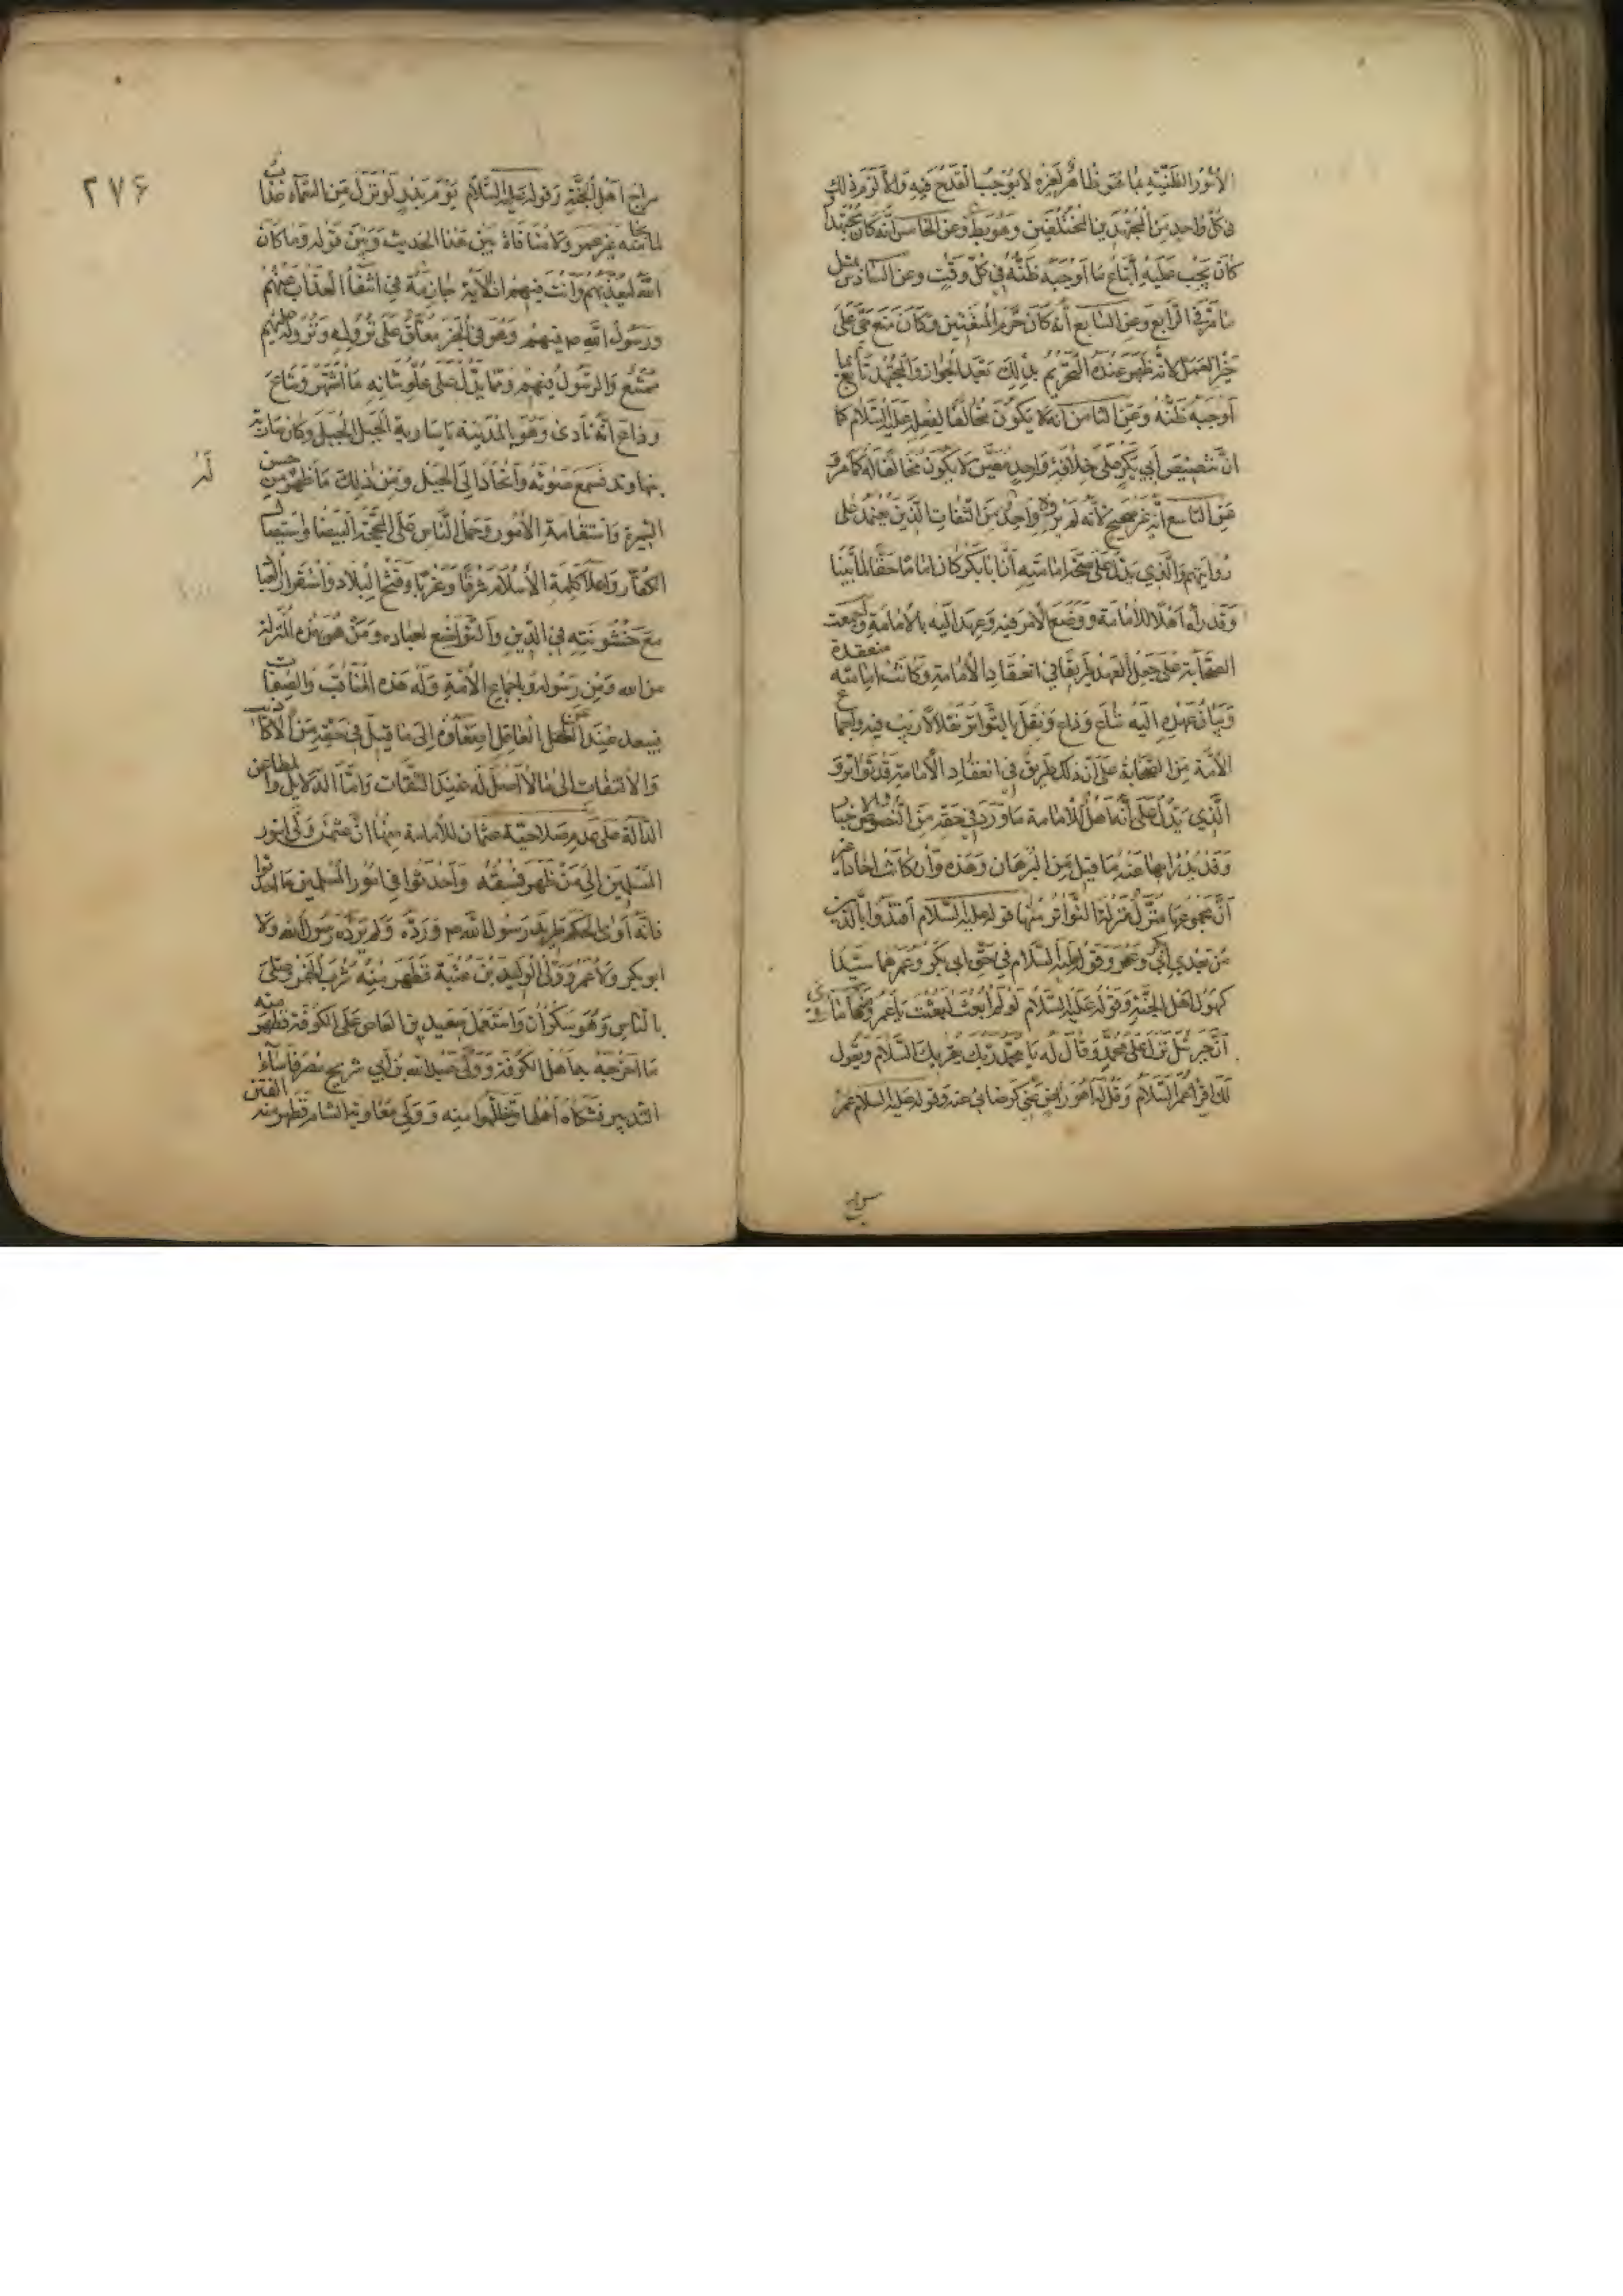 الأمور الظنية بما هو ظاهر لغيره لا يوجب القدح فيه وإلا لزم ذلك
في كل واحد من المجتهدين المختلفين وهو بط وعن الخامس أنه كان مجتهدا
كان يجب عليه أتباع ما أوجبه ظنه في كل وقت وعن السادس مثل
ما مر في الرابع وعن السابع أنه كان حرم المتعتين وكان منع حي على
خير العمل لأنه ظهر عنده التحريم بذلك بعد الجواز والمجتهد تابع لما
أوجبه ظنه وعن الثامن أنه لا يكون مخالفا لفعله عليه السلام كما
ان تنصيص أبي بكر على خلافة واحد معين لا يكون مخالفا له كما مر و
عن التاسع أنه غير صحيح لأنه لم يروه واحد من الثقات الذين يعتمد على
روايتهم والذي يدل على صحة امامته أن أبا بكر كان اماما حقا لما بينا
وقد رآه أهلا للامامة ووضع الأمر فيه وعهد اليه بالامامة واجمعت
الصحابة على جعل العهد طريقا في انعقاد الامامة وكانت امامته منعقدة
وبيان عهده اليه شاع وذاع ونقل بالتواتر نقلا لا ريب فيه واجماع
الأمة من الصحابة على أن ذلك طريق في انعقاد الامامة قد تواتر و
الذي يدل على أنه أهل للامامة ما ورد في حقه من النصوص والاخبار
وقد يدرا بها عنه ما قيل من البرهان وهذه وان كانت احادا غير
أن مجموعها منزل منزلة التواتر منها قوله عليه السلام اقتدوا بالذين
من بعدي أبي بكر وعمر وقوله عليه السلام في حق ابي بكر وعمر هما سيدا
كهول أهل الجنة وقوله عليه السلام لو لم أبعث لبعثت يا عمر ومنها ما روى
أن جبرئيل نزل على محمد وقال له يا محمد ربك يقريك السلام ويقول
لك اقرأ عمر السلام وقل له أهو راض عني كرضائي عنه وقوله عليه السلام عمر
سراج
٢٧۶
سراج أهل الجنة وقوله عليه السلام يوم بدر لو نزل من السماء عذاب
لما نجا منه غير عمر ولا منافاة بين هذا الحديث وبين قوله وما كان
الله ليعذبهم وأنت فيهم ان الآية جازمة في انتفاء العذاب عنهم
ورسول الله م فيهم وهو في الخبر معلق على نزوله ونزوله عليهم
ممتنع والرسول فيهم ومما يدل على علو شانه ما اشتهر وشاع
وذاع أنه نادى وهو بالمدينة يا سارية الجبل الجبل وكان سارية
بنهاوند فسمع صوته وانحاز الى الجبل ومن ذلك ما ظهر من حسن
السيرة واستقامة الامور وحمل الناس على المحجة البيضا واستيصال
الكفار واعلا كلمة الاسلام شرقا وغربا وفتح البلاد واستقرار العباد
مع خشونته في الدين والتواضع لعباده ومن هو بهذه المنزلة
من الله ومن رسوله وباجماع الأمة وله هذه المناقب والصفات
فيبعد عند العاقل اصغاؤه إلى ما قيل في حقه من الأكاذيب
والالتفات الى ما لا أصل له عند الثقات وأما الدلايل والمطاعن
الدالة على عدم صلاحية عثمان للامامة منها ان عثمن ولى امور
المسلمين إلى من ظهر فسقه وأحدثوا في امور المسلمين ما احدثوا
فانه آوى الحكم طريد رسول الله م ورده ولم يرده رسول الله ولا
ابو بكر ولا عمر وولى الوليد بن عتبة فظهر منه شرب الخمر وصلى
بالناس وهو سكران واستعمل سعيد بن العاص على الكوفة فظهر منه
ما اخرجه بها أهل الكوفة وولى عبد الله بن أبي شريح مصر فأساء
التدبير فشكاه أهلها وتظلموا منه وولى معاوية الشام فظهر منه الفتن